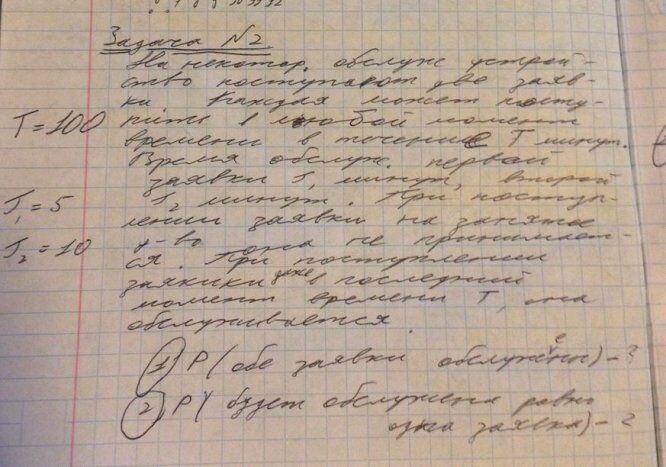 Задача №2
На некотор. обслуж устрой-
ство поступают две заяв-
ки Каждая может посту-
T = 100 пить в любой момент
времени в течение T минут.
Время обслуж. первой
заявки T₁ минут, второй
T₁ = 5 T₂ минут. При поступ-
лении заявки на занятое
T₂ = 10 у-во она не принимает-
ся. При поступлении
заявки даже в последний
момент времени T, она
обслуживается.
1) P(обе заявки обслужены) - ?
2) P(будет обслужена равно
одна заявка) - ?